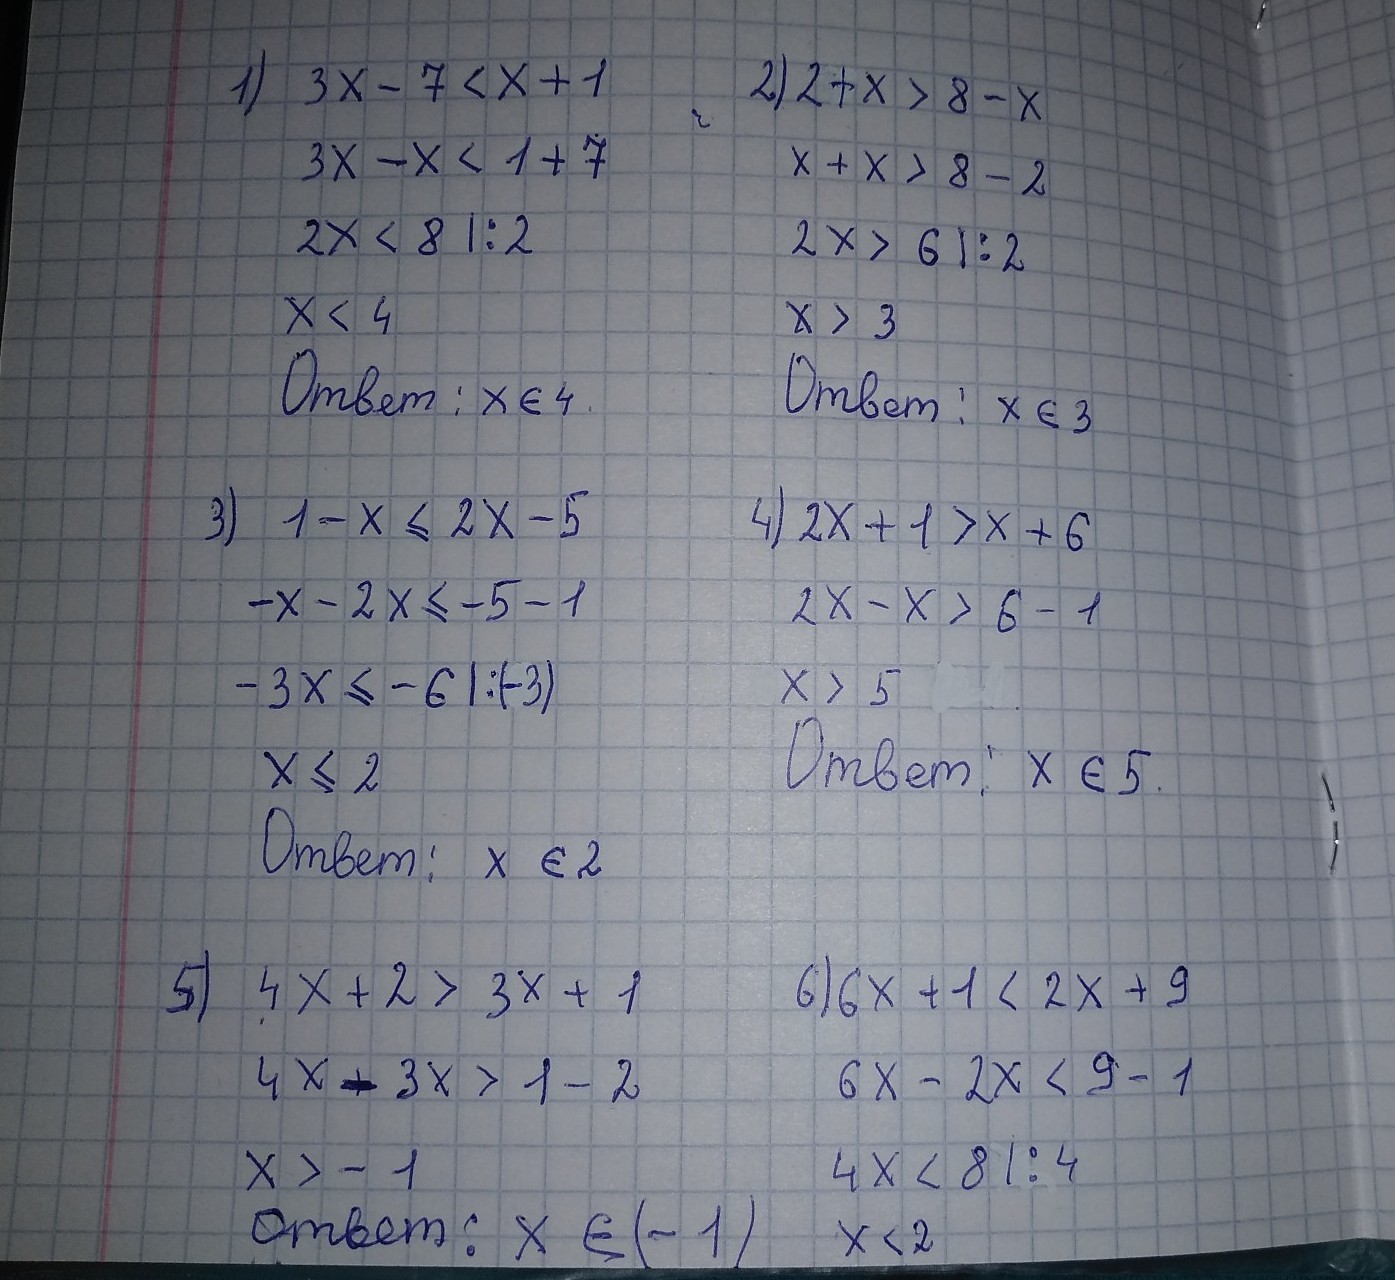 1) 3x - 7 < x + 1
3x - x < 1 + 7
2x < 8 |:2
x < 4
Ответ: x ∈ 4.
2) 2 + x > 8 - x
x + x > 8 - 2
2x > 6 |:2
x > 3
Ответ: x ∈ 3
3) 1 - x ⩽ 2x - 5
-x - 2x ⩽ -5 - 1
-3x ⩽ -6 |:(-3)
x ⩽ 2
Ответ: x ∈ 2
4) 2x + 1 > x + 6
2x - x > 6 - 1
x > 5
Ответ: x ∈ 5.
5) 4x + 2 > 3x + 1
4x - 3x > 1 - 2
x > - 1
Ответ: x ∈ (- 1)
6) 6x + 1 < 2x + 9
6x - 2x < 9 - 1
4x < 8 |:4
x < 2